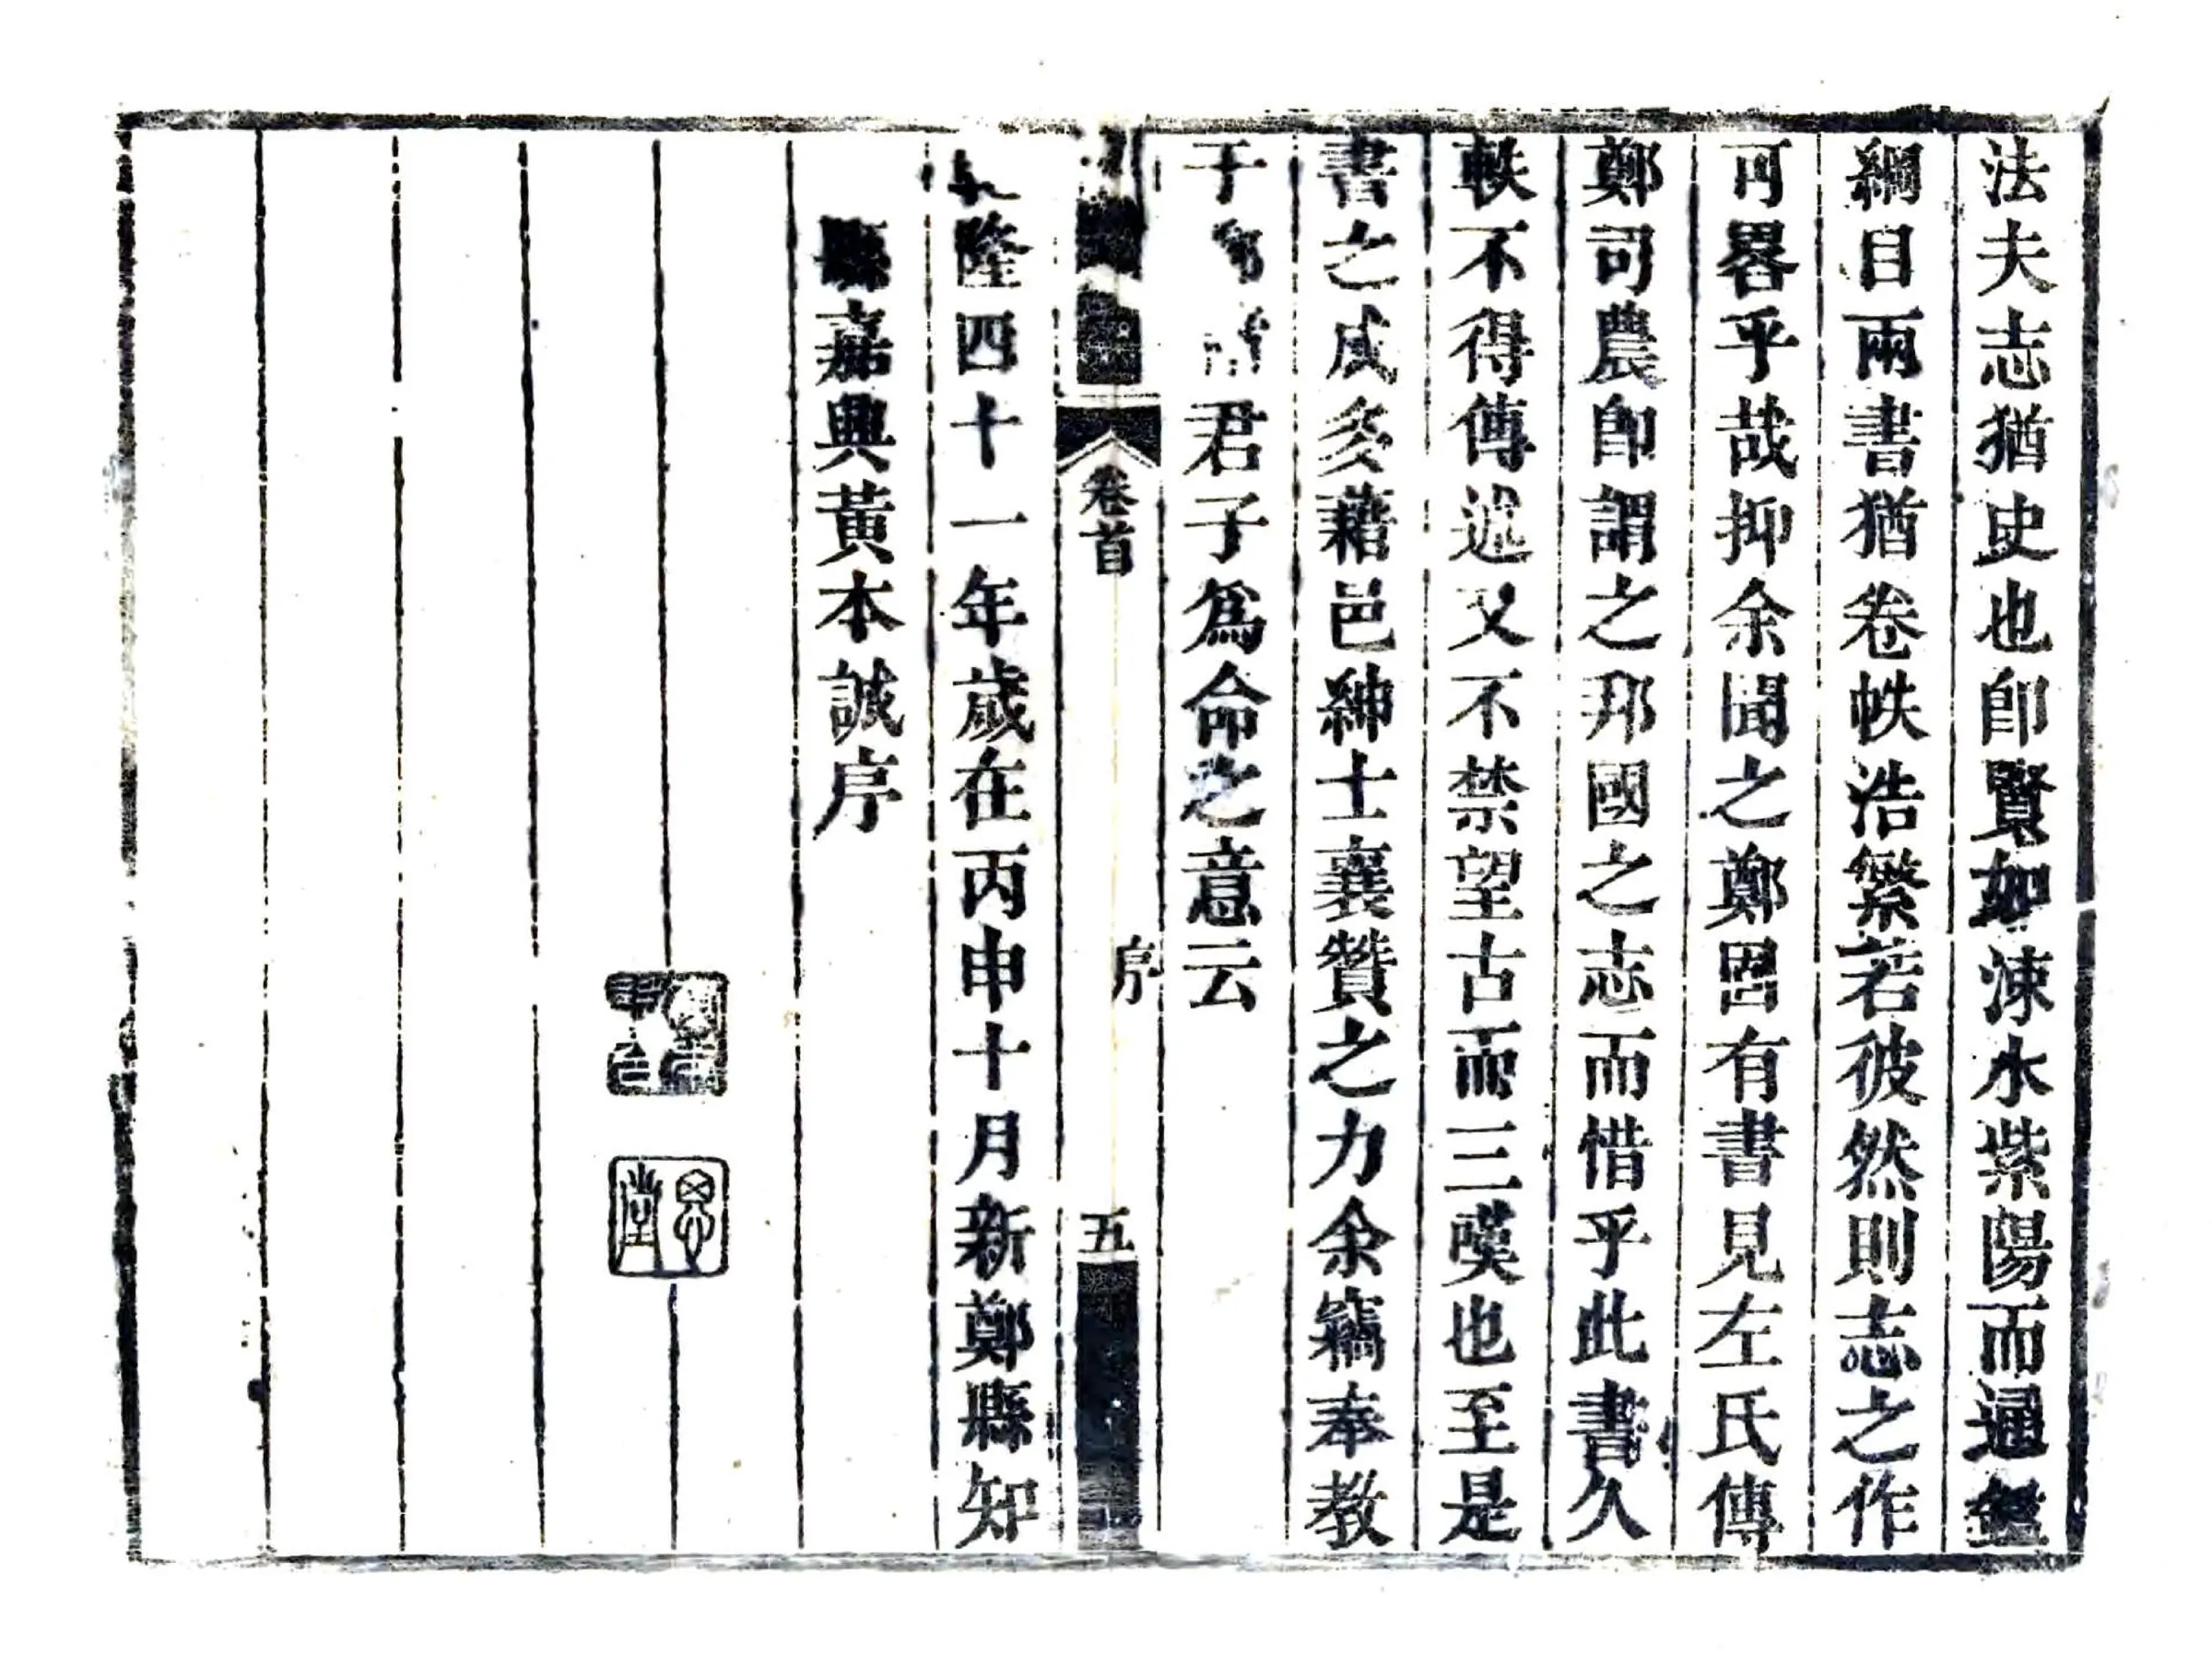 法夫志猶史也卽賢如涑水紫陽而通鑑
綱目兩書猶卷帙浩繁若彼然則志之作
可畧乎哉抑余聞之鄭咠有書見左氏傳
鄭司農卽謂之邦國之志而惜乎此書久
軼不得傳述又不禁望古而三嘆也至是
書之成多藉邑紳士襄贊之力余竊奉教
于 君子爲命之意云
卷首
序
五
乾隆四十一年歲在丙申十月新鄭縣知
縣嘉興黃本誠序
思堂